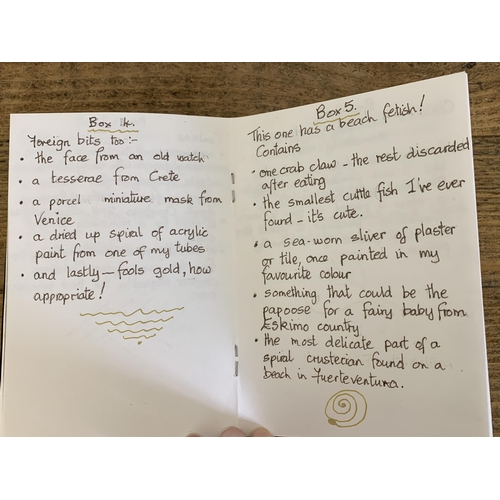 Box 4.
Foreign bits too:-
• the face from an old watch
• a tesserae from Crete
• a porcel miniature mask from
Venice
• a dried up spiral of acrylic
paint from one of my tubes
• and lastly - fools gold, how
appropriate!
Box 5.
This one has a beach fetish!
Contains
• one crab claw - the rest discarded
after eating
• the smallest cuttle fish I've ever
found - it's cute.
• a sea-worn sliver of plaster
or tile, once painted in my
favourite colour
• something that could be the
papoose for a fairy baby from
Eskimo country
• the most delicate part of a
spiral crusterian found on a
beach in Fuerteventura.